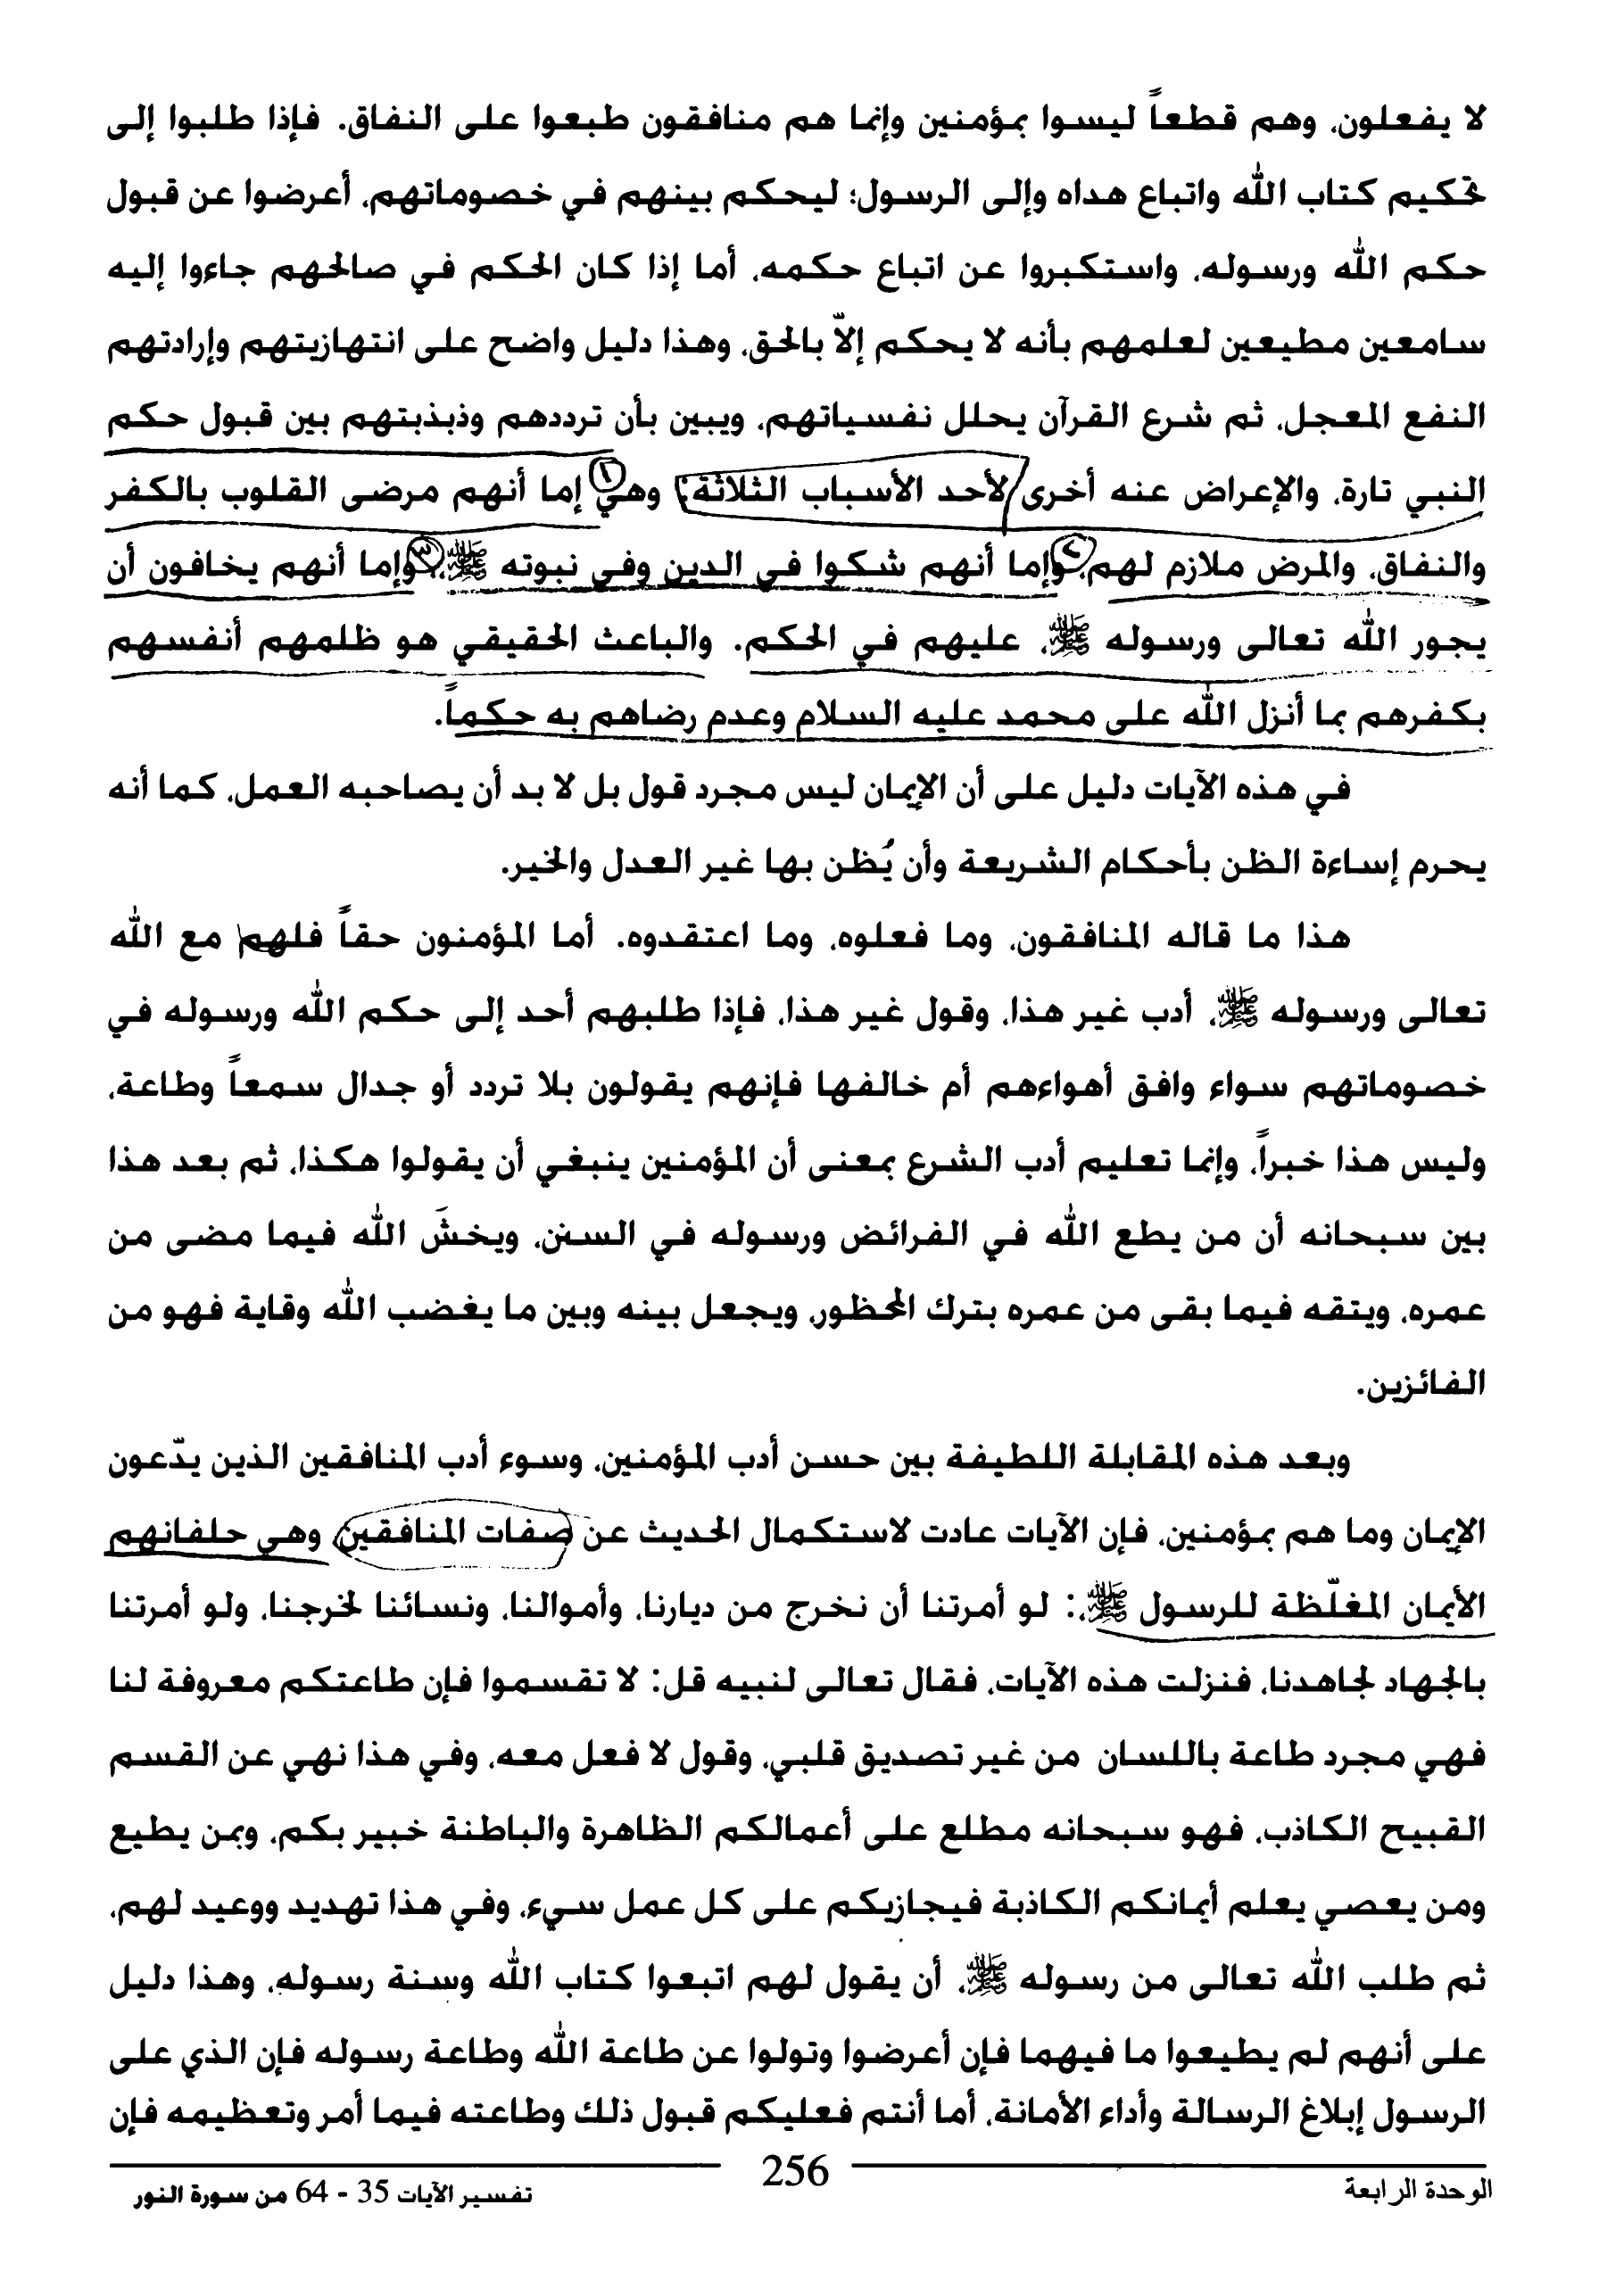 لا يفعلون، وهم قطعاً ليسوا بمؤمنين وإنما هم منافقون طبعوا على النفاق. فإذا طلبوا إلى
تحكيم كتاب الله واتباع هداه وإلى الرسول؛ ليحكم بينهم في خصوماتهم، أعرضوا عن قبول
حكم الله ورسوله، واستكبروا عن اتباع حكمه، أما إذا كان الحكم في صالحهم جاءوا إليه
سامعين مطيعين لعلمهم بأنه لا يحكم إلاّ بالحق، وهذا دليل واضح على انتهازيتهم وإرادتهم
النفع المعجل، ثم شرع القرآن يحلل نفسياتهم، ويبين بأن ترددهم وذبذبتهم بين قبول حكم
النبي تارة، والإعراض عنه أخرى لأحد الأسباب الثلاثة؛ وهي ١ إما أنهم مرضى القلوب بالكفر
والنفاق، والمرض ملازم لهم، ٢ وإما أنهم شكوا في الدين وفي نبوته ﷺ، ٣ وإما أنهم يخافون أن
يجور الله تعالى ورسوله ﷺ، عليهم في الحكم. والباعث الحقيقي هو ظلمهم أنفسهم
بكفرهم بما أنزل الله على محمد عليه السلام وعدم رضاهم به حكماً.
في هذه الآيات دليل على أن الإيمان ليس مجرد قول بل لا بد أن يصاحبه العمل، كما أنه
يحرم إساءة الظن بأحكام الشريعة وأن يُظن بها غير العدل والخير.
هذا ما قاله المنافقون، وما فعلوه، وما اعتقدوه. أما المؤمنون حقاً فلهم مع الله
تعالى ورسوله ﷺ، أدب غير هذا، وقول غير هذا، فإذا طلبهم أحد إلى حكم الله ورسوله في
خصوماتهم سواء وافق أهواءهم أم خالفها فإنهم يقولون بلا تردد أو جدال سمعاً وطاعة،
وليس هذا خبراً، وإنما تعليم أدب الشرع بمعنى أن المؤمنين ينبغي أن يقولوا هكذا، ثم بعد هذا
بين سبحانه أن من يطع الله في الفرائض ورسوله في السنن، ويخشَ الله فيما مضى من
عمره، ويتقه فيما بقى من عمره بترك المحظور، ويجعل بينه وبين ما يغضب الله وقاية فهو من
الفائزين.
وبعد هذه المقابلة اللطيفة بين حسن أدب المؤمنين، وسوء أدب المنافقين الذين يدّعون
الإيمان وما هم بمؤمنين، فإن الآيات عادت لاستكمال الحديث عن صفات المنافقين وهي حلفانهم
الأيمان المغلّظة للرسول ﷺ،: لو أمرتنا أن نخرج من ديارنا، وأموالنا، ونسائنا لخرجنا، ولو أمرتنا
بالجهاد لجاهدنا، فنزلت هذه الآيات، فقال تعالى لنبيه قل: لا تقسموا فإن طاعتكم معروفة لنا
فهي مجرد طاعة باللسان من غير تصديق قلبي، وقول لا فعل معه، وفي هذا نهي عن القسم
القبيح الكاذب، فهو سبحانه مطلع على أعمالكم الظاهرة والباطنة خبير بكم، وبمن يطيع
ومن يعصي يعلم أيمانكم الكاذبة فيجازيكم على كل عمل سيء، وفي هذا تهديد ووعيد لهم،
ثم طلب الله تعالى من رسوله ﷺ، أن يقول لهم اتبعوا كتاب الله وسنة رسوله، وهذا دليل
على أنهم لم يطيعوا ما فيهما فإن أعرضوا وتولوا عن طاعة الله وطاعة رسوله فإن الذي على
الرسول إبلاغ الرسالة وأداء الأمانة، أما أنتم فعليكم قبول ذلك وطاعته فيما أمر وتعظيمه فإن
الوحدة الرابعة 256 تفسير الآيات 35 - 64 من سورة النور